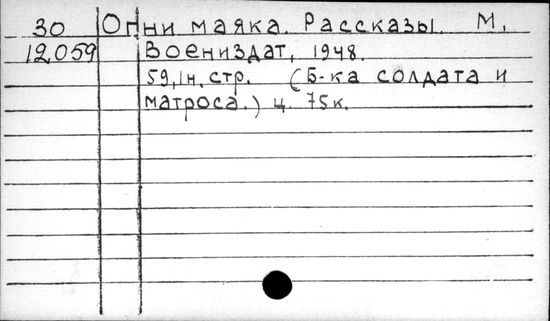 30 Огни маяка. Рассказы. М.
12,059 Воениздат, 1948.
59,1н. стр. (Б-ка солдата и
матроса.) ц. 75к.